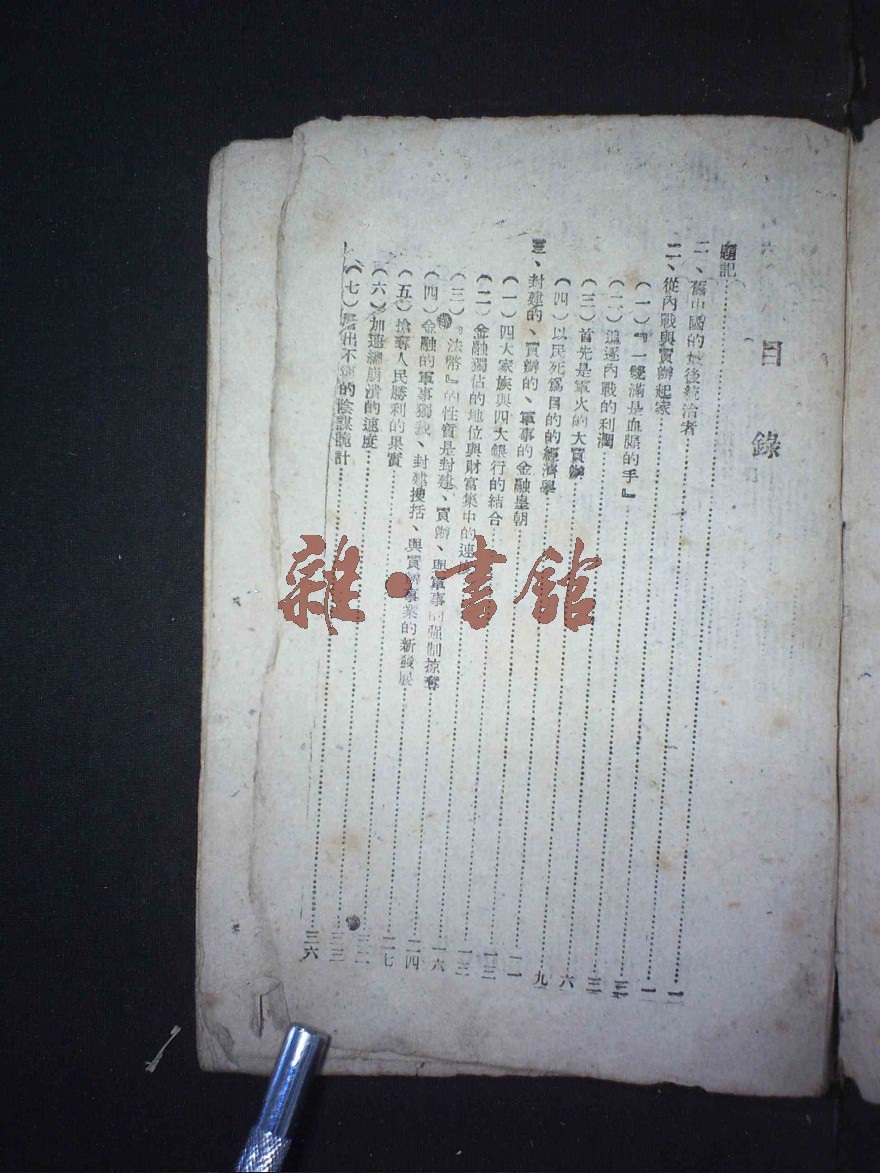 目錄
題記
一、舊中國的最後統治者……一
二、從內戰與買辦起家……三
(一)『一雙滿是血腥的手』……三
(二)追逐內戰的利潤……六
(三)首先是軍火的大買辦……九
(四)以民死爲目的的經濟學……一一
三、封建的、買辦的、軍事的金融皇朝
(一)四大家族與四大銀行的結合……一三
(二)金融獨佔的地位與財富集中的速……一六
(三)『法幣』的性質是封建、買辦、與軍事的强制掠奪……二四
(四)金融的軍事獨裁、封建搜括、與買辦事業的新發展……二七
(五)搶奪人民勝利的果實
(六)加速總崩潰的速度……三三
(七)層出不窮的陰謀詭計……三六
雜·書館